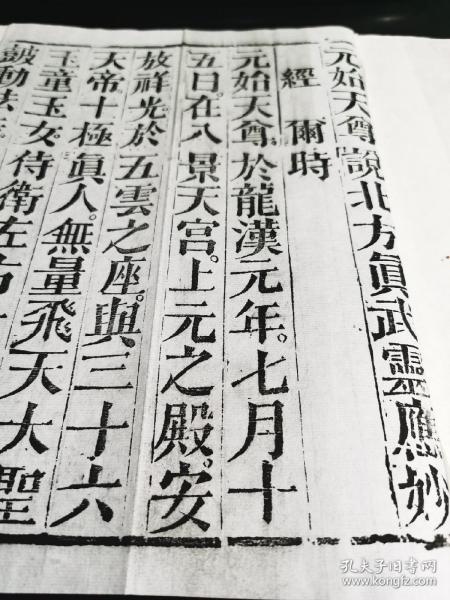 元始天尊說北方真武靈應妙
經 爾時
元始天尊。於龍漢元年。七月十
五日。在八景天宮。上元之殿。安
放祥光於五雲之座。與三十六
天帝十極眞人。無量飛天大聖
玉童玉女侍衛左右
鼓動法
孔夫子旧书网
www.kongfz.com